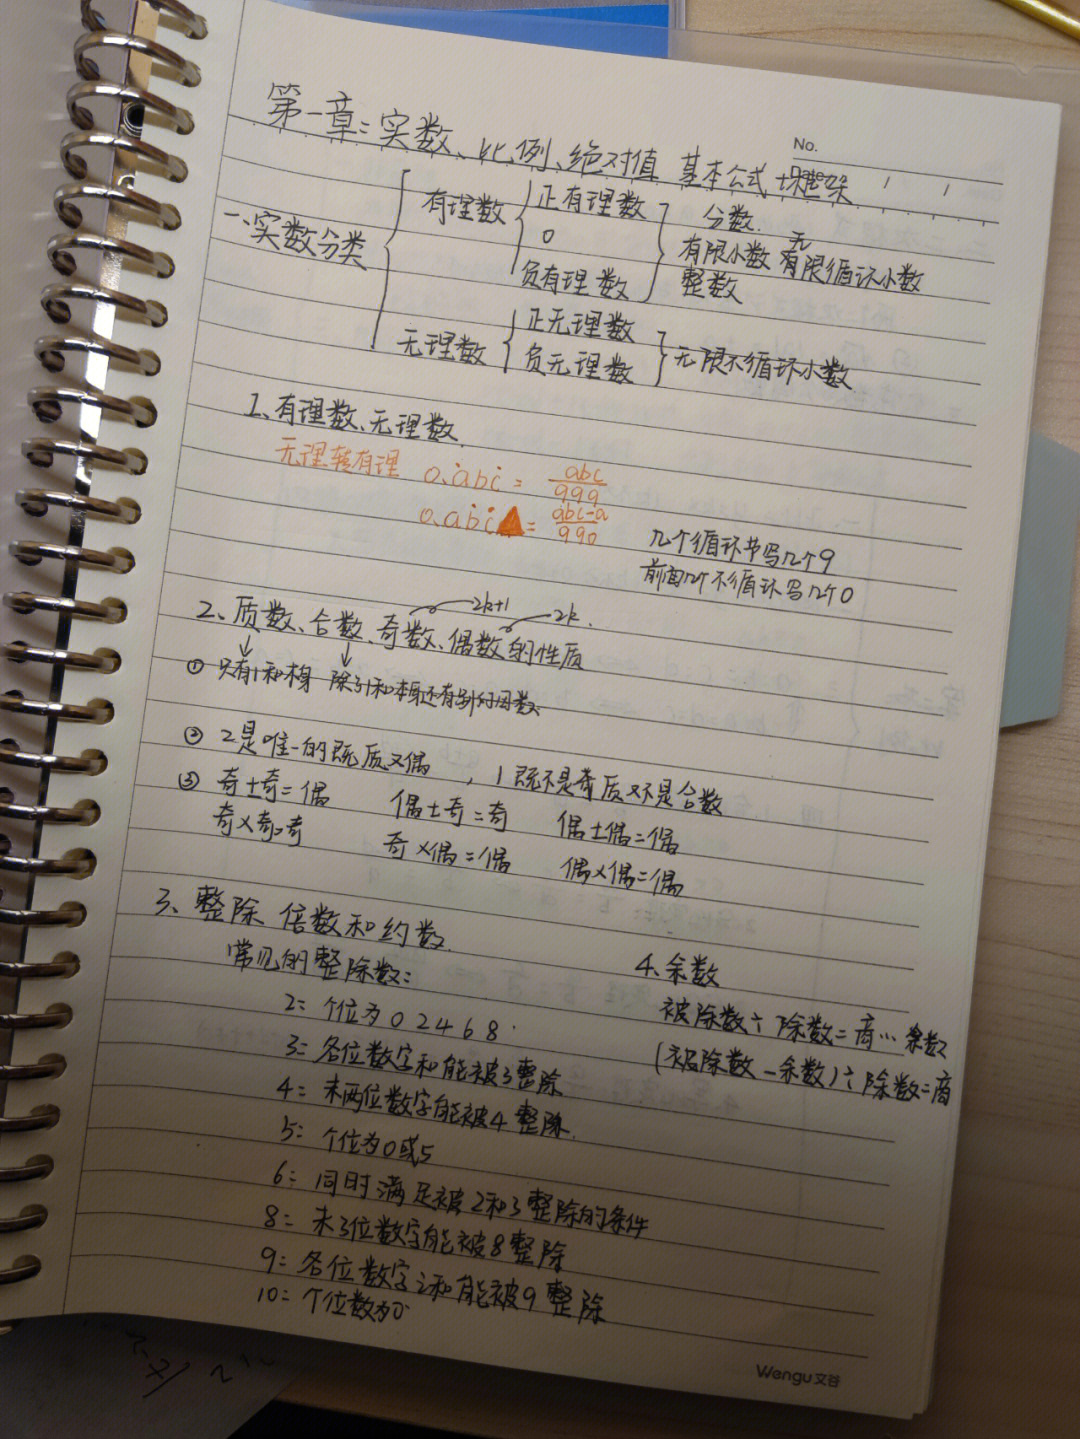 No.
Date
第一章：实数、比例、绝对值 基本公式+框架
一、实数分类
有理数
正有理数
0
负有理数
分数.
有限小数 无限循环小数
整数
无理数
正无理数
负无理数
无限不循环小数
1、有理数、无理数.
无理转有理 0.ȧbċ = abc/999
0.aḃċ = abc-a/990
几个循环节写几个9
前面几个不循环写几个0
2k+1 2k.
2、质数、合数、奇数、偶数的性质
① 只有1和本身 除了1和本身还有别的因数
② 2是唯一的既质又偶，1既不是质又不是合数
③ 奇±奇=偶 偶±奇=奇 偶±偶=偶
奇×奇=奇 奇×偶=偶 偶×偶=偶
3、整除 倍数和约数.
常见的整除数：
2：个位为 0 2 4 6 8
3：各位数字和能被3整除
4：末两位数字能被4整除.
5：个位为0或5
6：同时满足被2和3整除的条件
8：末3位数字能被8整除
9：各位数字之和能被9整除
10：个位数为0
4、余数
被除数÷除数=商…余数
(被除数-余数)÷除数=商
Wengu文谷